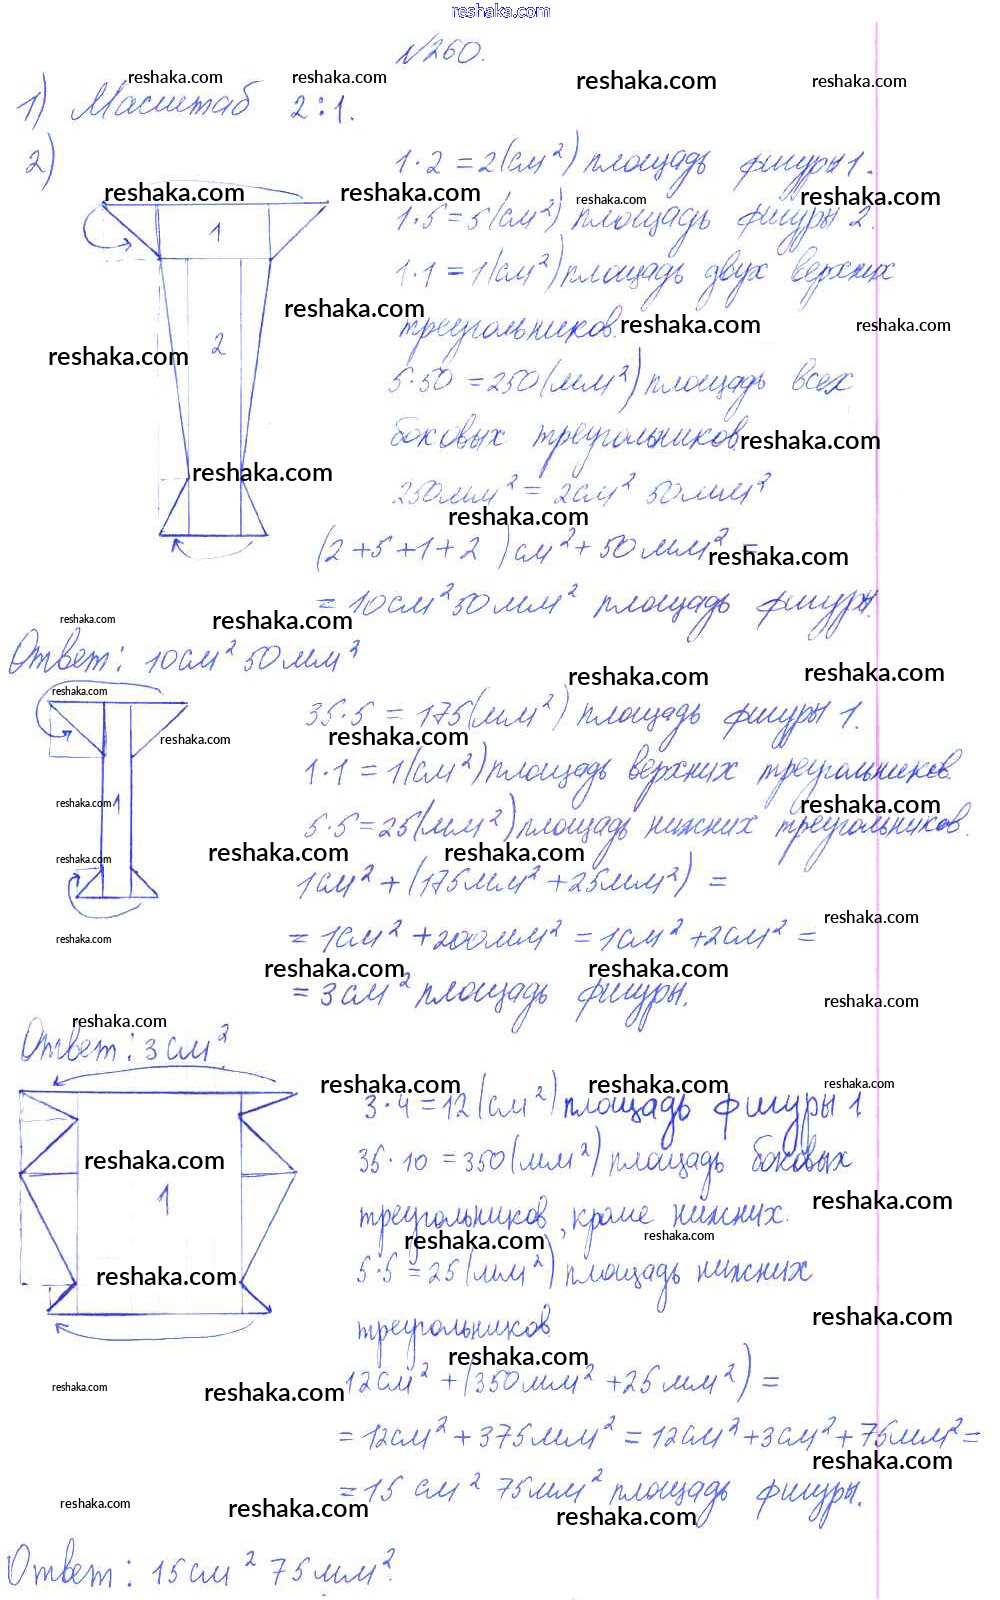 reshaka.com
№260.
1) Масштаб 2:1.
2)
1·2=2(см²) площадь фигуры 1.
1·5=5(см²) площадь фигуры 2.
1·1=1(см²) площадь двух верхних
треугольников.
5·50=250(мм²) площадь всех
боковых треугольников.
250мм²=2см² 50мм²
(2+5+1+2)см²+50мм²=
=10см²50мм² площадь фигуры.
1
2
Ответ: 10см² 50мм²
35·5=175(мм²) площадь фигуры 1.
1·1=1(см²) площадь верхних треугольников.
5·5=25(мм²) площадь нижних треугольников.
1см²+(175мм²+25мм²)=
=1см²+200мм²=1см²+2см²=
=3см² площадь фигуры.
1
Ответ: 3см².
3·4=12(см²) площадь фигуры 1
35·10=350(мм²) площадь боковых
треугольников, кроме нижних.
5·5=25(мм²) площадь нижних
треугольников.
12см²+(350мм²+25мм²)=
=12см²+375мм²=12см²+3см²+75мм²=
=15 см² 75мм² площадь фигуры.
1
Ответ: 15см² 75мм².